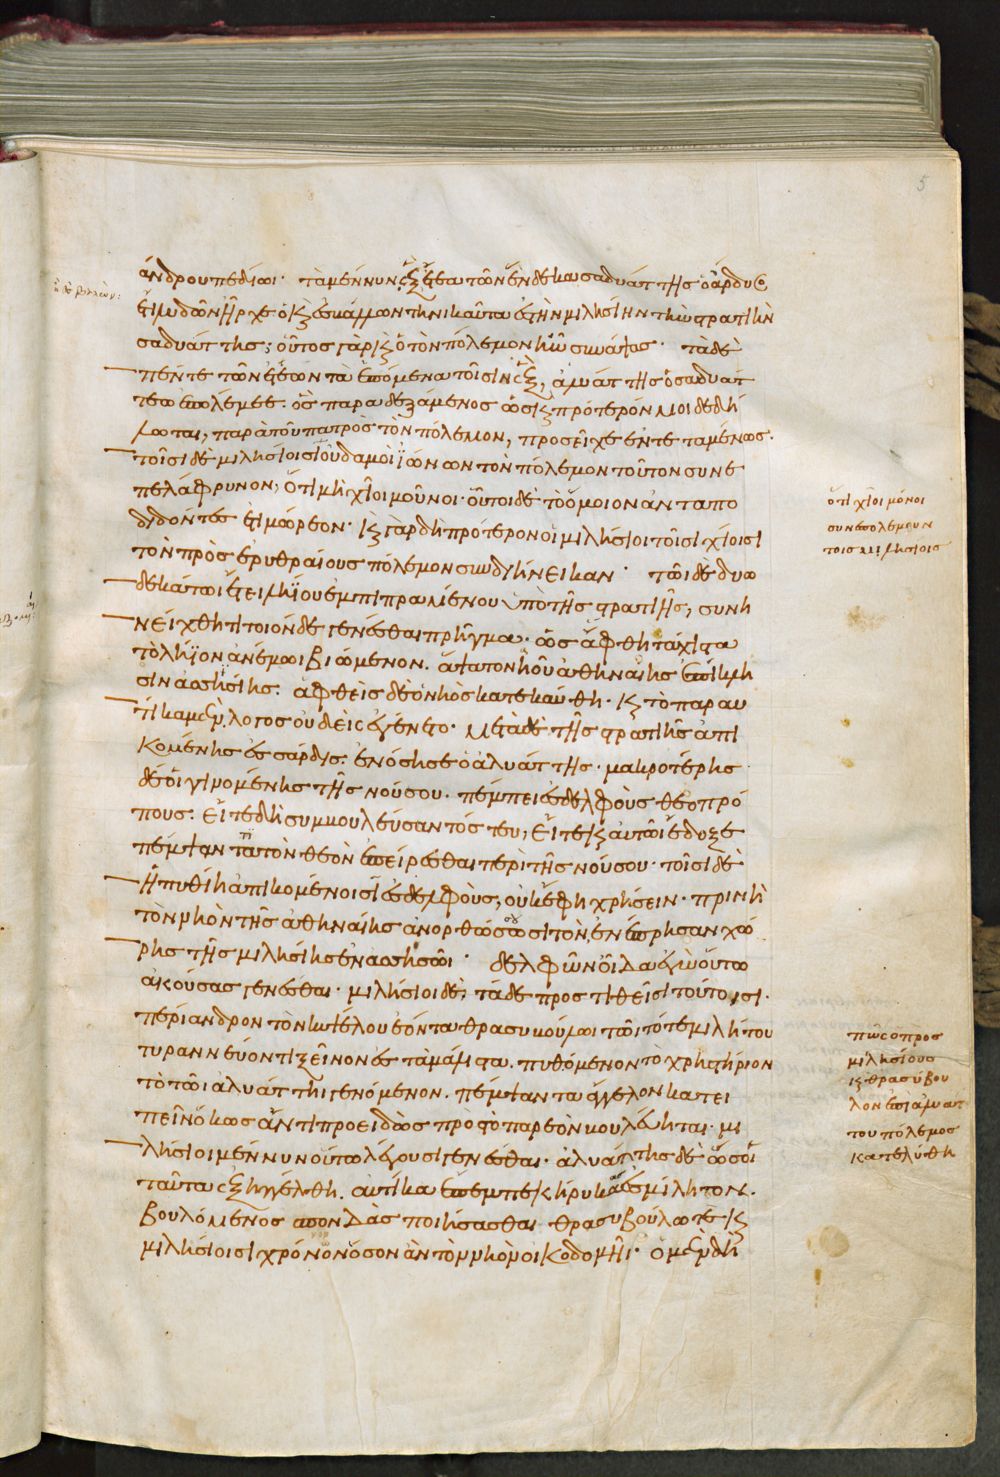 5
άνδρου πεδίωι· τὰ μέν νυν ἓξ ἔτεα τῶν ἕνδεκα σαδυάττης ὁ ἄρδυος
ἔτι λυδῶν ἦρχε ὁ καὶ ἐσβάλλων τηνικαῦτα ἐς τὴν μιλησίην τὴν στρατιὴν
σαδυάττης; οὗτος γὰρ καὶ ὁ τὸν πόλεμον ἦν συνάψας· τὰ δὲ
πέντε τῶν ἐτέων τὰ ἑπόμενα τοῖσιν ἓξ, ἀλυάττης ὁ σαδυάτ
τεω ἐπολέμεε. ὃς παραδεξάμενος ὡς καὶ πρότερόν μοι δεδή
λωται, παρὰ τοῦ πατρὸς τὸν πόλεμον, προσεῖχε ἐντεταμένως·
τοῖσι δὲ μιλησίοισι οὐδαμοὶ ἰώνων τὸν πόλεμον τοῦτον συνε
πελάφρυνον, ὅτι μὴ χῖοι μοῦνοι· οὗτοι δὲ τὸ ὅμοιον ἀνταπο
διδόντες ἐτιμώρεον· καὶ γὰρ δὴ πρότερον οἱ μιλήσιοι τοῖσι χίοισι
τὸν πρὸς ἐρυθραίους πόλεμον συνδιήνεικαν· τῶι δὲ δυω
δεκάτωι ἔτει ληίου ἐμπιπραμένου ὑπὸ τῆς στρατιῆς, συνη
νείχθη τι τοιόνδε γενέσθαι πρῆγμα· ὡς ἅφθη τάχιστα
τὸ λήϊον ἀνέμωι βιώμενον. ἅψατο νηοῦ ἀθηναίης ἐπίκλη
σιν ἀσσησίης. ἁφθεὶς δὲ ὁ νηὸς κατεκαύθη· καὶ τὸ παραυ
τίκα μὲν λόγος οὐδεὶς ἐγένετο· μετὰ δὲ τῆς στρατιῆς ἀπι
κομένης ἐς σάρδις· ἐνόσησε ὁ ἀλυάττης· μακροτέρης
δέ οἱ γινομένης τῆς νούσου· πέμπει ἐς δελφοὺς θεοπρό
πους. εἴτε δὴ συμβουλεύσαντός τευ, εἴτε καὶ αὐτῶι ἔδοξε
πέμψαντα τὸν θεὸν ἐπείρεσθαι περὶ τῆς νούσου· τοῖσι δὲ
ἡ πυθίη ἀπικομένοισι ἐς δελφοὺς, οὐκ ἔφη χρήσειν· πρὶν ἢ
τὸν νηὸν τῆς ἀθηναίης ἀνορθώσωσι τὸν ἐνέπρησαν χώ
ρης τῆς μιλησίης ἐν ἀσσησῶι· δελφῶν οἶδα ἐγὼ οὕτω
ἀκούσας γενέσθαι· μιλήσιοι δὲ, τάδε προστιθεῖσι τούτοισι·
περίανδρον τὸν κυψέλου ἐόντα θρασυβούλωι τῶι τότε μιλήτου
τυραννεύοντι ξεῖνον ἐς τὰ μάλιστα. πυθόμενον τὸ χρηστήριον
τὸ τῶι ἀλυάττηι γενόμενον. πέμψαντα ἄγγελον κατει
πεῖν ὅκως ἄν τι προειδὼς πρὸς τὸ παρεὸν βουλεύηται· μι
λήσιοι μέν νυν οὕτω λέγουσι γενέσθαι· ἀλυάττης δὲ ὥς οἱ
ταῦτα ἐξηγγέλθη. αὐτίκα ἔπεμπε κήρυκα ἐς μίλητον.
βουλόμενος σπονδὰς ποιήσασθαι θρασυβούλωι τε καὶ
μιλησίοισι χρόνον ὅσον ἂν τὸν νηὸν οἰκοδομῆι· ὁ μὲν δὴ
ὅτι χῖοι μόνοι
συνεπολέμουν
τοῖς μιλησίοις
πῶς ὁ πρὸς
μιλησίους
καὶ θρασύβου
λον ἐπὶ ἀλυάτ
του πόλεμος
κατελύθη